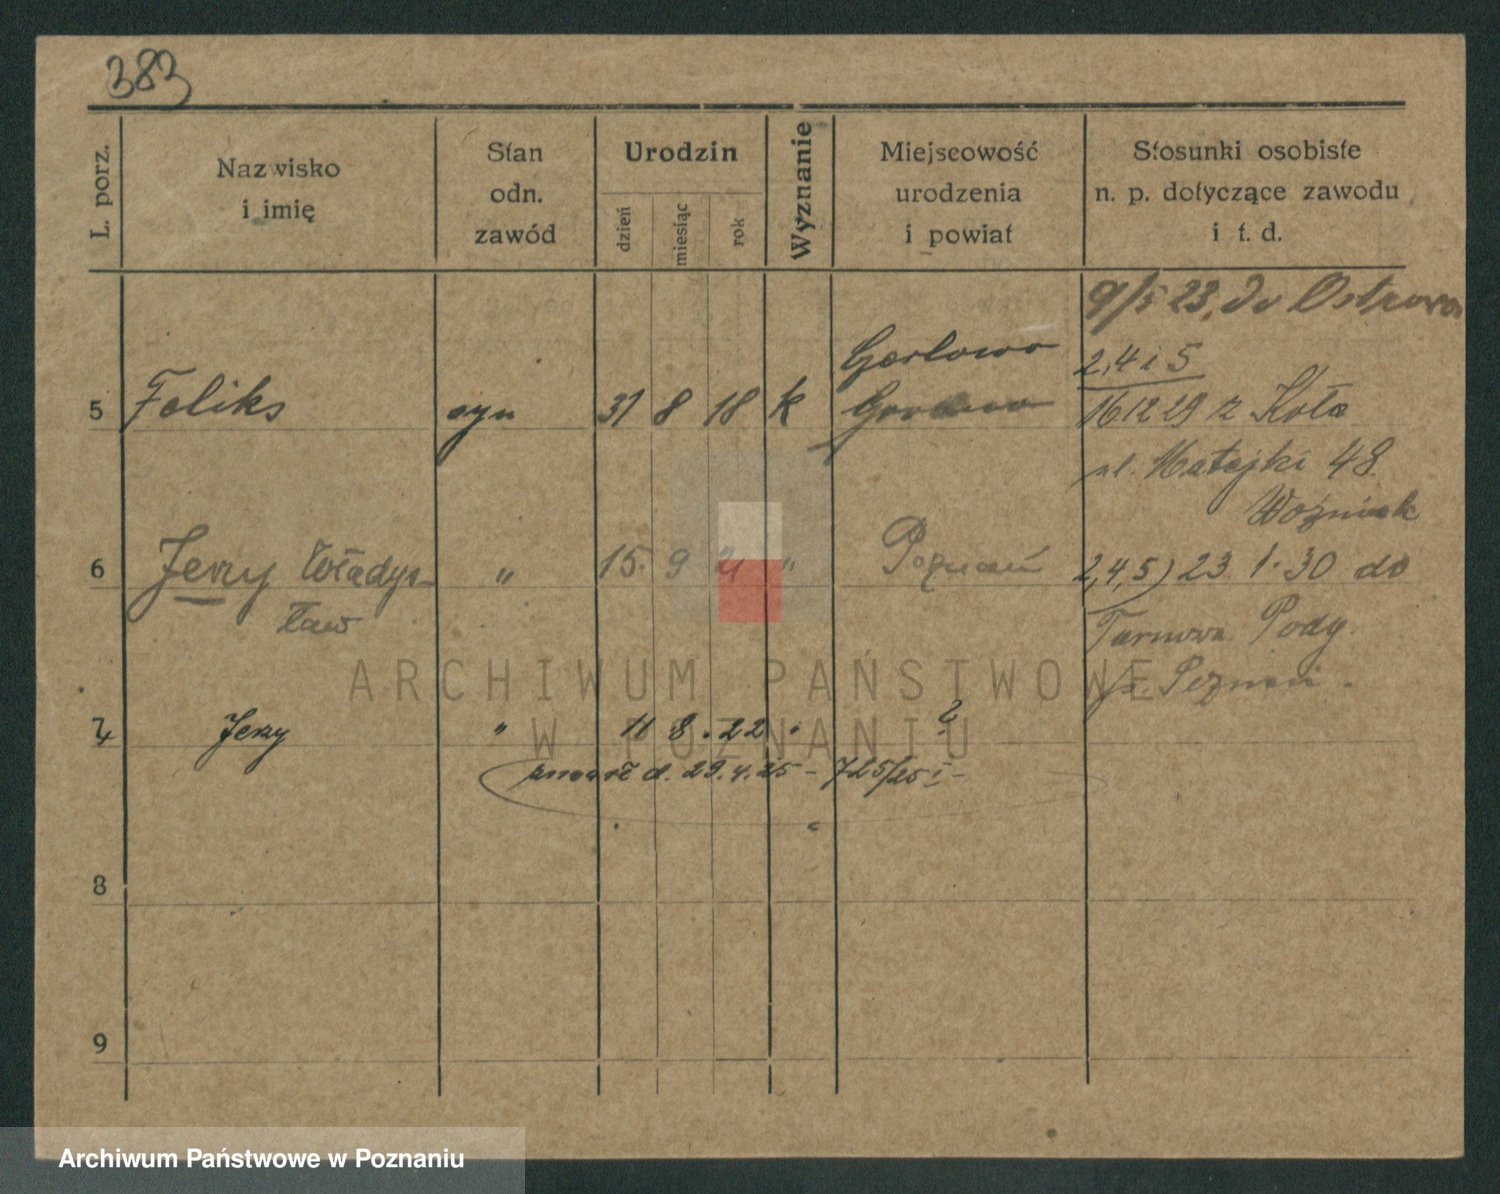 383
L. porz.
Nazwisko
i imię
Stan
odn.
zawód
Urodzin
dzień
miesiąc
rok
Wyznanie
Miejscowość
urodzenia
i powiat
Stosunki osobiste
n. p. dotyczące zawodu
i t. d.
9/5 23. do Ostrowa
Gorlowo
2,4 i 5
5 Feliks syn 31 8 18 k
16 12 29 z Koła
ul. Matejki 48.
Woźniak
6 Jerzy Władys- " 15. 9 " Poznań 2,4,5) 23. 1. 30 do
ław
Tarnowa Podg.
p. Poznań.
7 Jerzy " 11 8. 22 " ?
zmarł d. 29.4.25 - 725/25 I -
8
9
ARCHIWUM PAŃSTWOWE
W POZNANIU
Archiwum Państwowe w Poznaniu